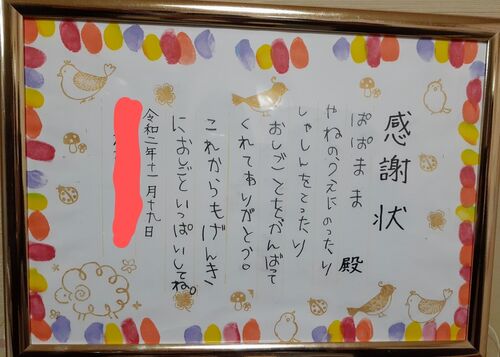 感謝状
ぱぱまま 殿
やねのうえにのったり
しゃしんをとったり
おしごとをがんばって
くれてありがとう。
これからもげんき
におしごといっぱいしてね。
令和二年十一月十九日